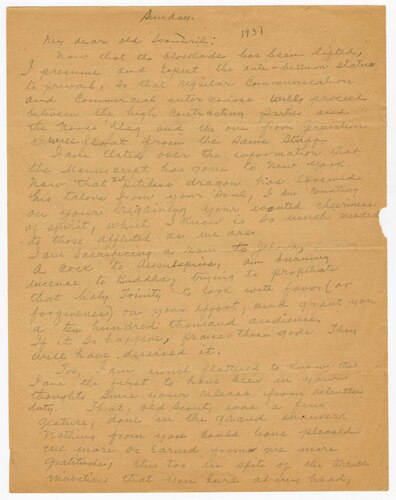 Sunday.
1931
My dear old Scoundril:
Now that the blockade has been lifted,
I presume and expect the ante-bellum status
to prevail, so that regular communication
and commercial inter course will proceed
between the high contracting parties, and
the Norse Flag and the one from Jerusalem
will float from the same Staff.
I am elated over the information that
the Manuscript has gone to New York.
Now that that pitiless dragon has loosened
his talons from your Soul, I am counting
on your regaining your wonted cheeriness
of spirit, which I know is so much needed
to those afflicted as we are.
I am sacrificing a Ram to Jehova,
a Cock to Aesculapius, am burning
incense to Buddha, trying to propitiate
that Holy Trinity to look with favor (or
forgiveness) on your effort, and grant you
a ten hundred thousand audience.
If it so happens, praise these gods. They
will have deserved it.
Too, I am much flattered to know that
I am the first to have been in your
thoughts since your release from relentless
duty. That, old Scout, was a fine
gesture, done in the grand manner.
Nothing from you could have pleased
me more or earned from me more
gratitude, this too in spite of the
invective that you hurl at my head,